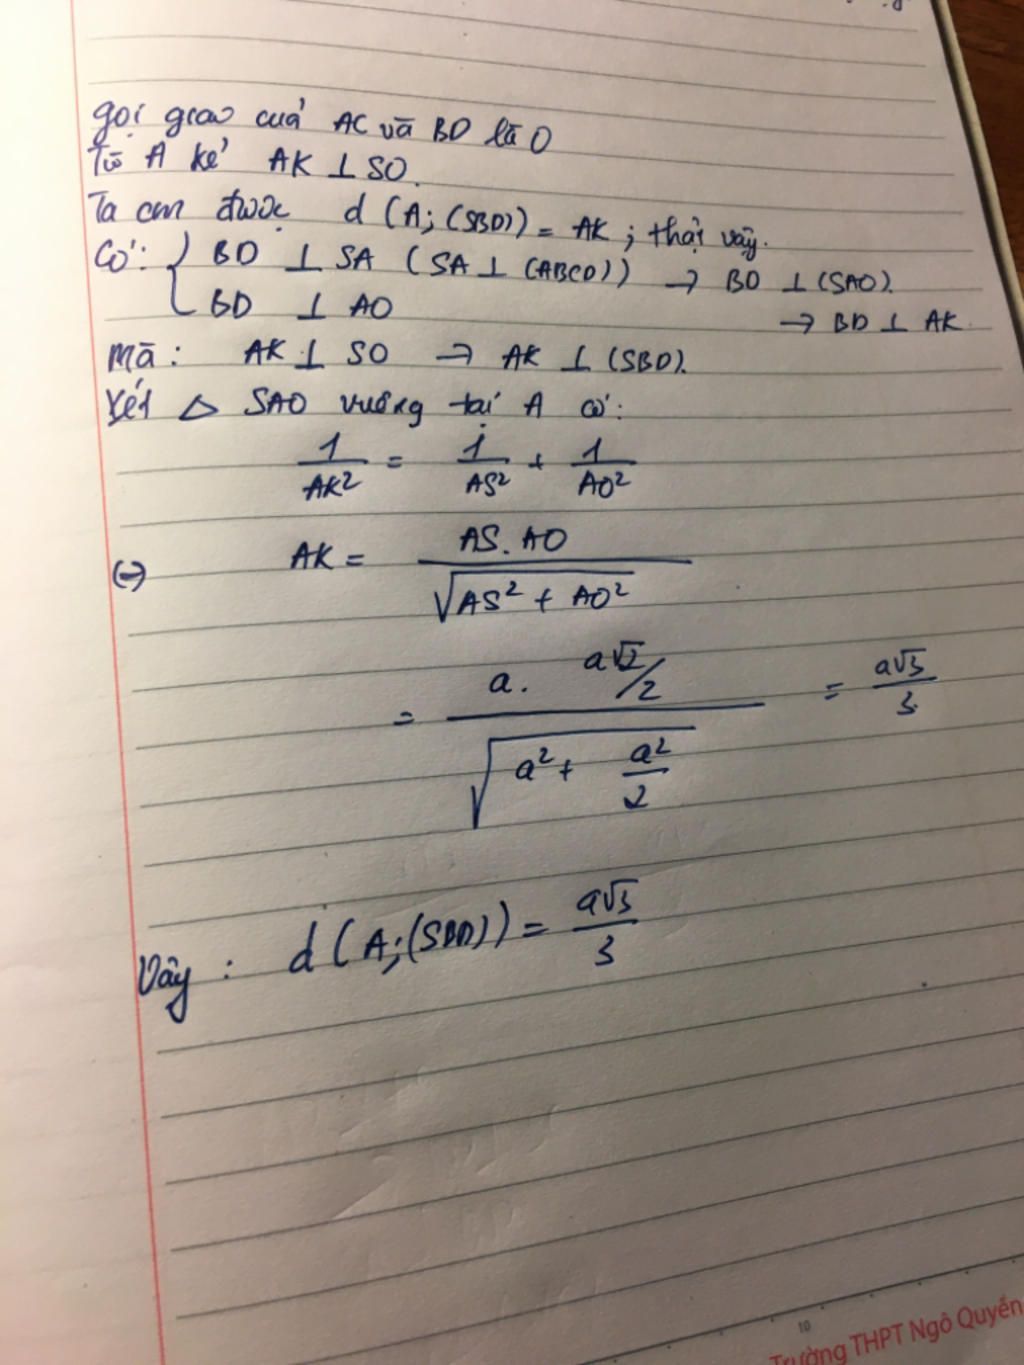 gọi giao của AC và BD là O
Từ A kẻ AK ⊥ SO.
Ta cm được d(A;(SBD)) = AK ; thật vậy.
Có: { BD ⊥ SA (SA ⊥ (ABCD)) → BD ⊥ (SAO).
BD ⊥ AO → BD ⊥ AK.
Mà: AK ⊥ SO → AK ⊥ (SBD).
Xét △ SAO vuông tại A có:
1/AK² = 1/AS² + 1/AO²
(=) AK = AS.AO / √(AS² + AO²)
= a. a√2/2 / √(a² + a²/2) = a√3/3
Vậy : d(A;(SBD)) = a√3/3
10
Trường THPT Ngô Quyền